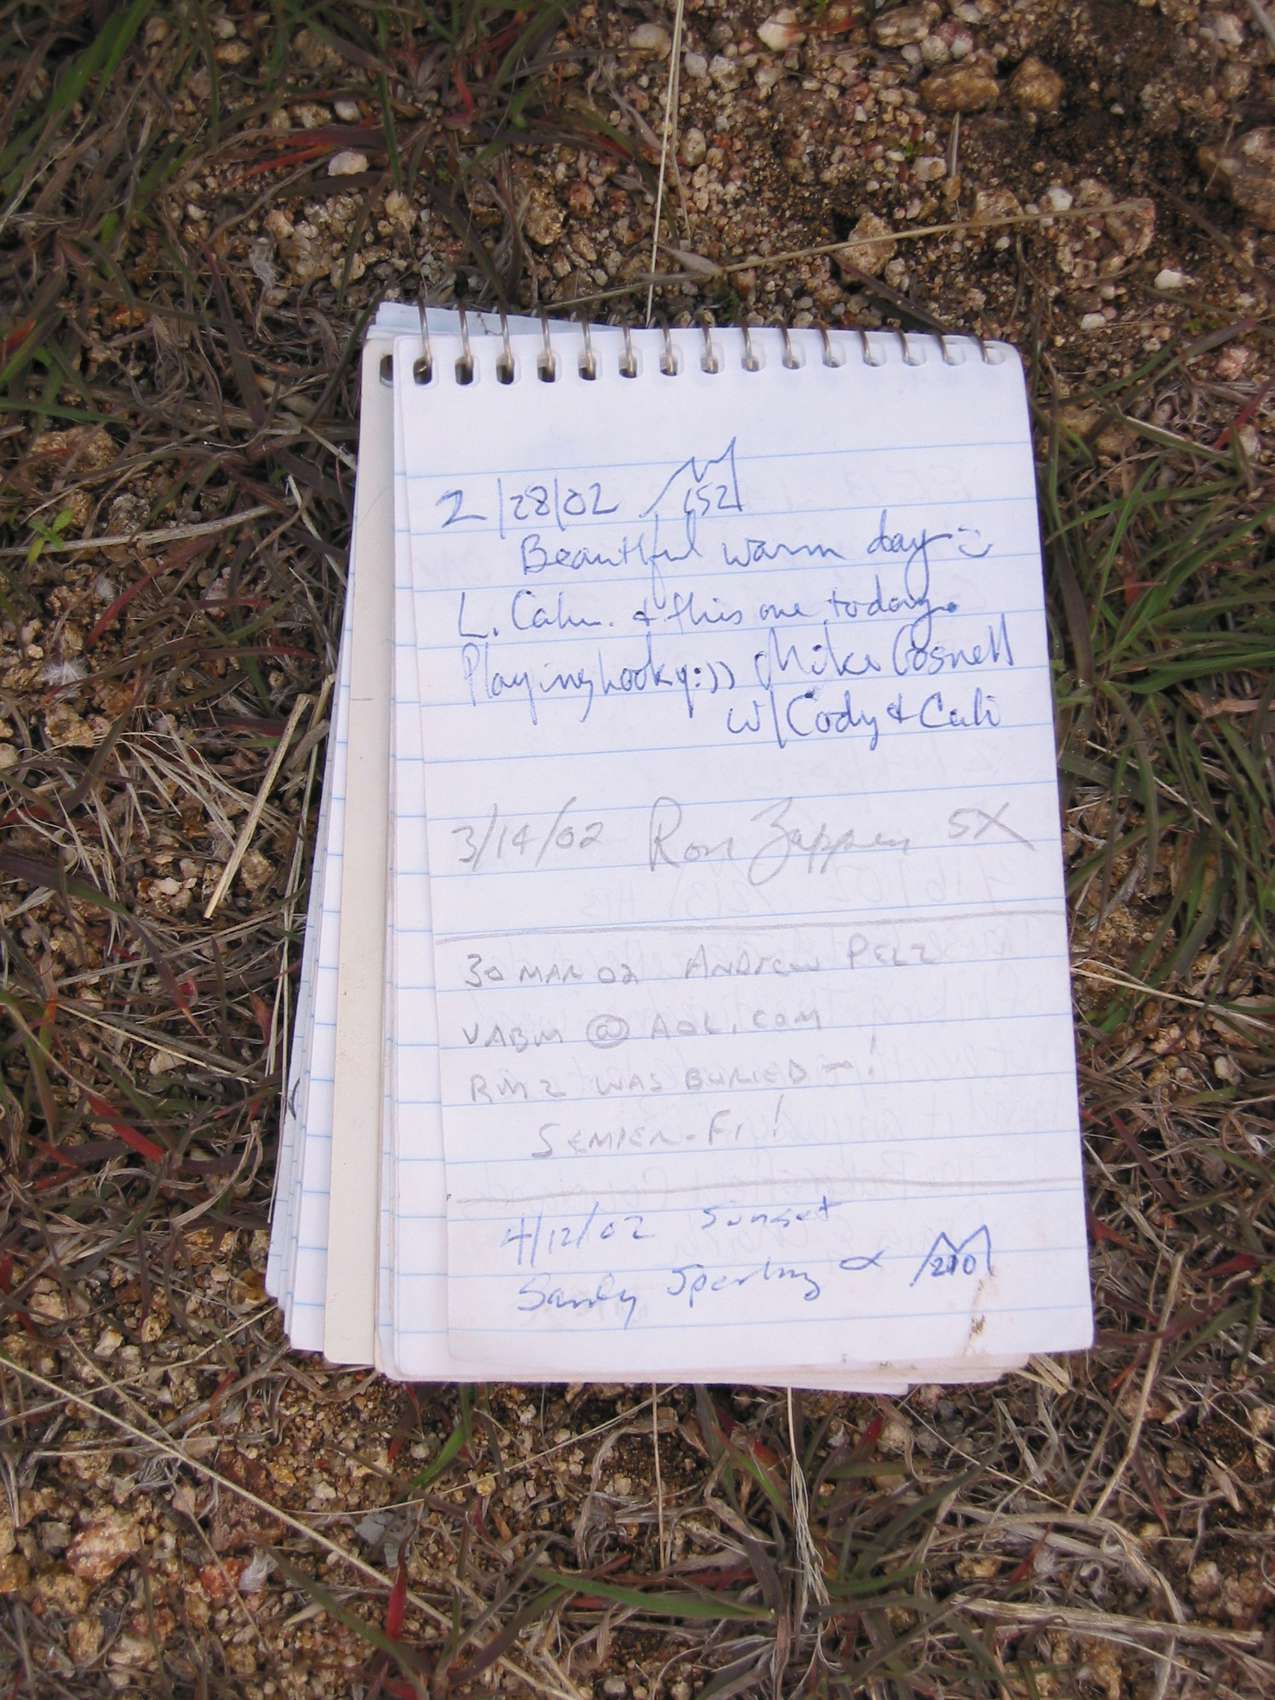 2/28/02 152
Beautiful warm day :)
L. Cahu. & this one today.
Playing hooky :)) Mike Gosnell
w/ Cody & Cali
3/14/02 Ron Zappen 5X
30 MAR 02 ANDREW PELZ
VABM @ AOL.COM
RM 2 WAS BURIED — !
SEMPER-FI!
4/12/02 Sunset
Sandy Sperling 210